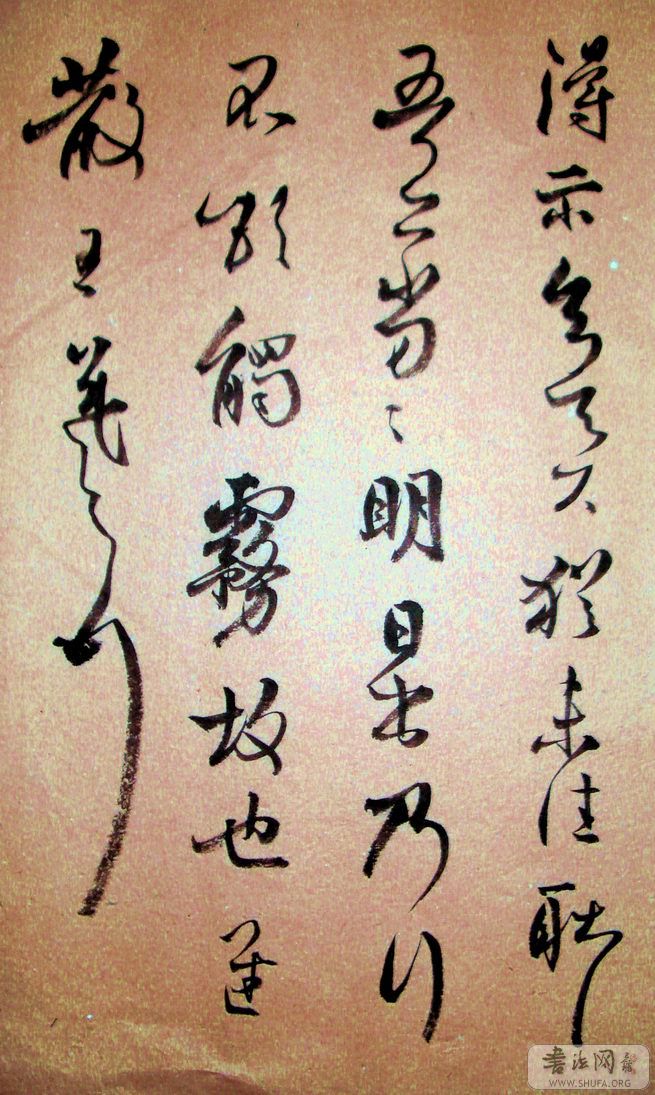 得示知足下猶未佳耿〻
吾亦劣〻明日出乃行
不欲觸霧故也遲
散王羲之頓首
書法网
WWW.SHUFA.ORG